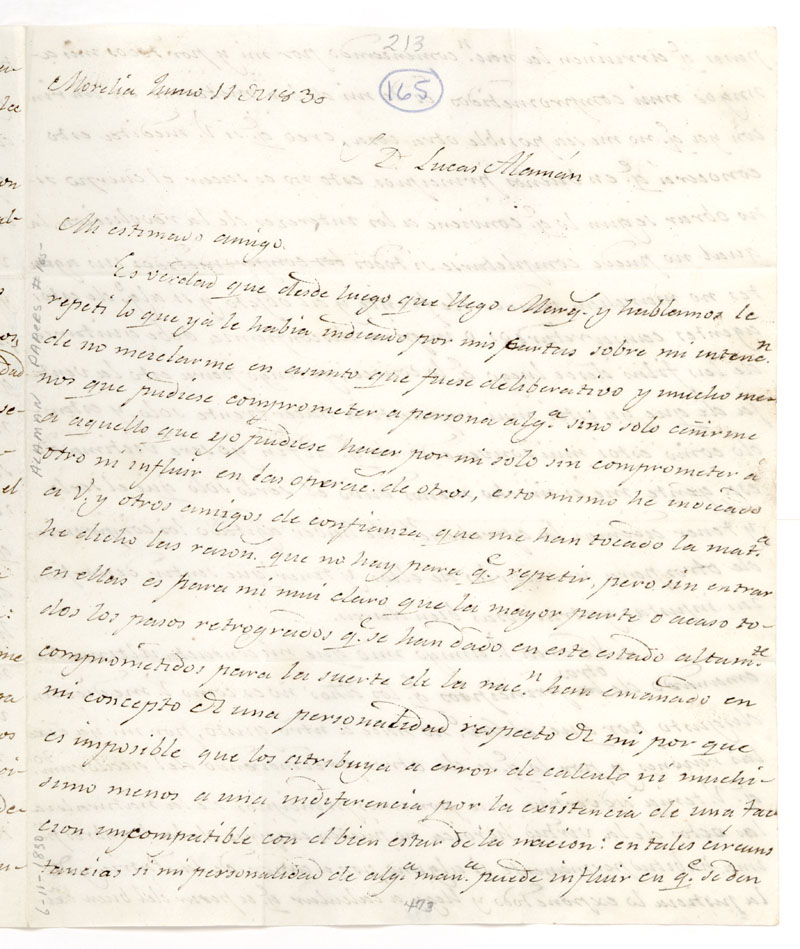 213
165
Morelia Junio 11 de 1830
D. Lucas Alamán
Mi estimado amigo.
Es verdad que desde luego que llego Marq. y hablamos le
repeti lo que yá le habia indicado por mis cartas sobre mi intenc.n
de no mezclarme en asunto que fuese deliberativo y mucho me-
nos que pudiese comprometer a persona alg.a sino solo ceñirme
a aquello que yo pudiese hacer por mi solo sin comprometer á
otro ni influir en las operac. de otros, esto mismo he indicado
a V. y otros amigos de confianza que me han tocado la mat.a
he dicho las razon. que no hay para q.e repetir, pero sin entrar
en ellas es para mi mui claro que la mayor parte o acaso to-
dos los pasos retrogrados q.e se han dado en este estado altam.te
comprometidos para la suerte de la nac.n han emanado en
mi concepto de una personalidad respecto de mi por que
es imposible que los atribuya a error de calculo ni muchi-
simo menos a una indiferencia por la existencia de una fac
cion incompatible con el bien estar de la nacion: en tales circuns
tancias si mi personalidad de alg.a man.a puede influir en q.e se den
473
ALAMAN PAPERS
6-11-1830